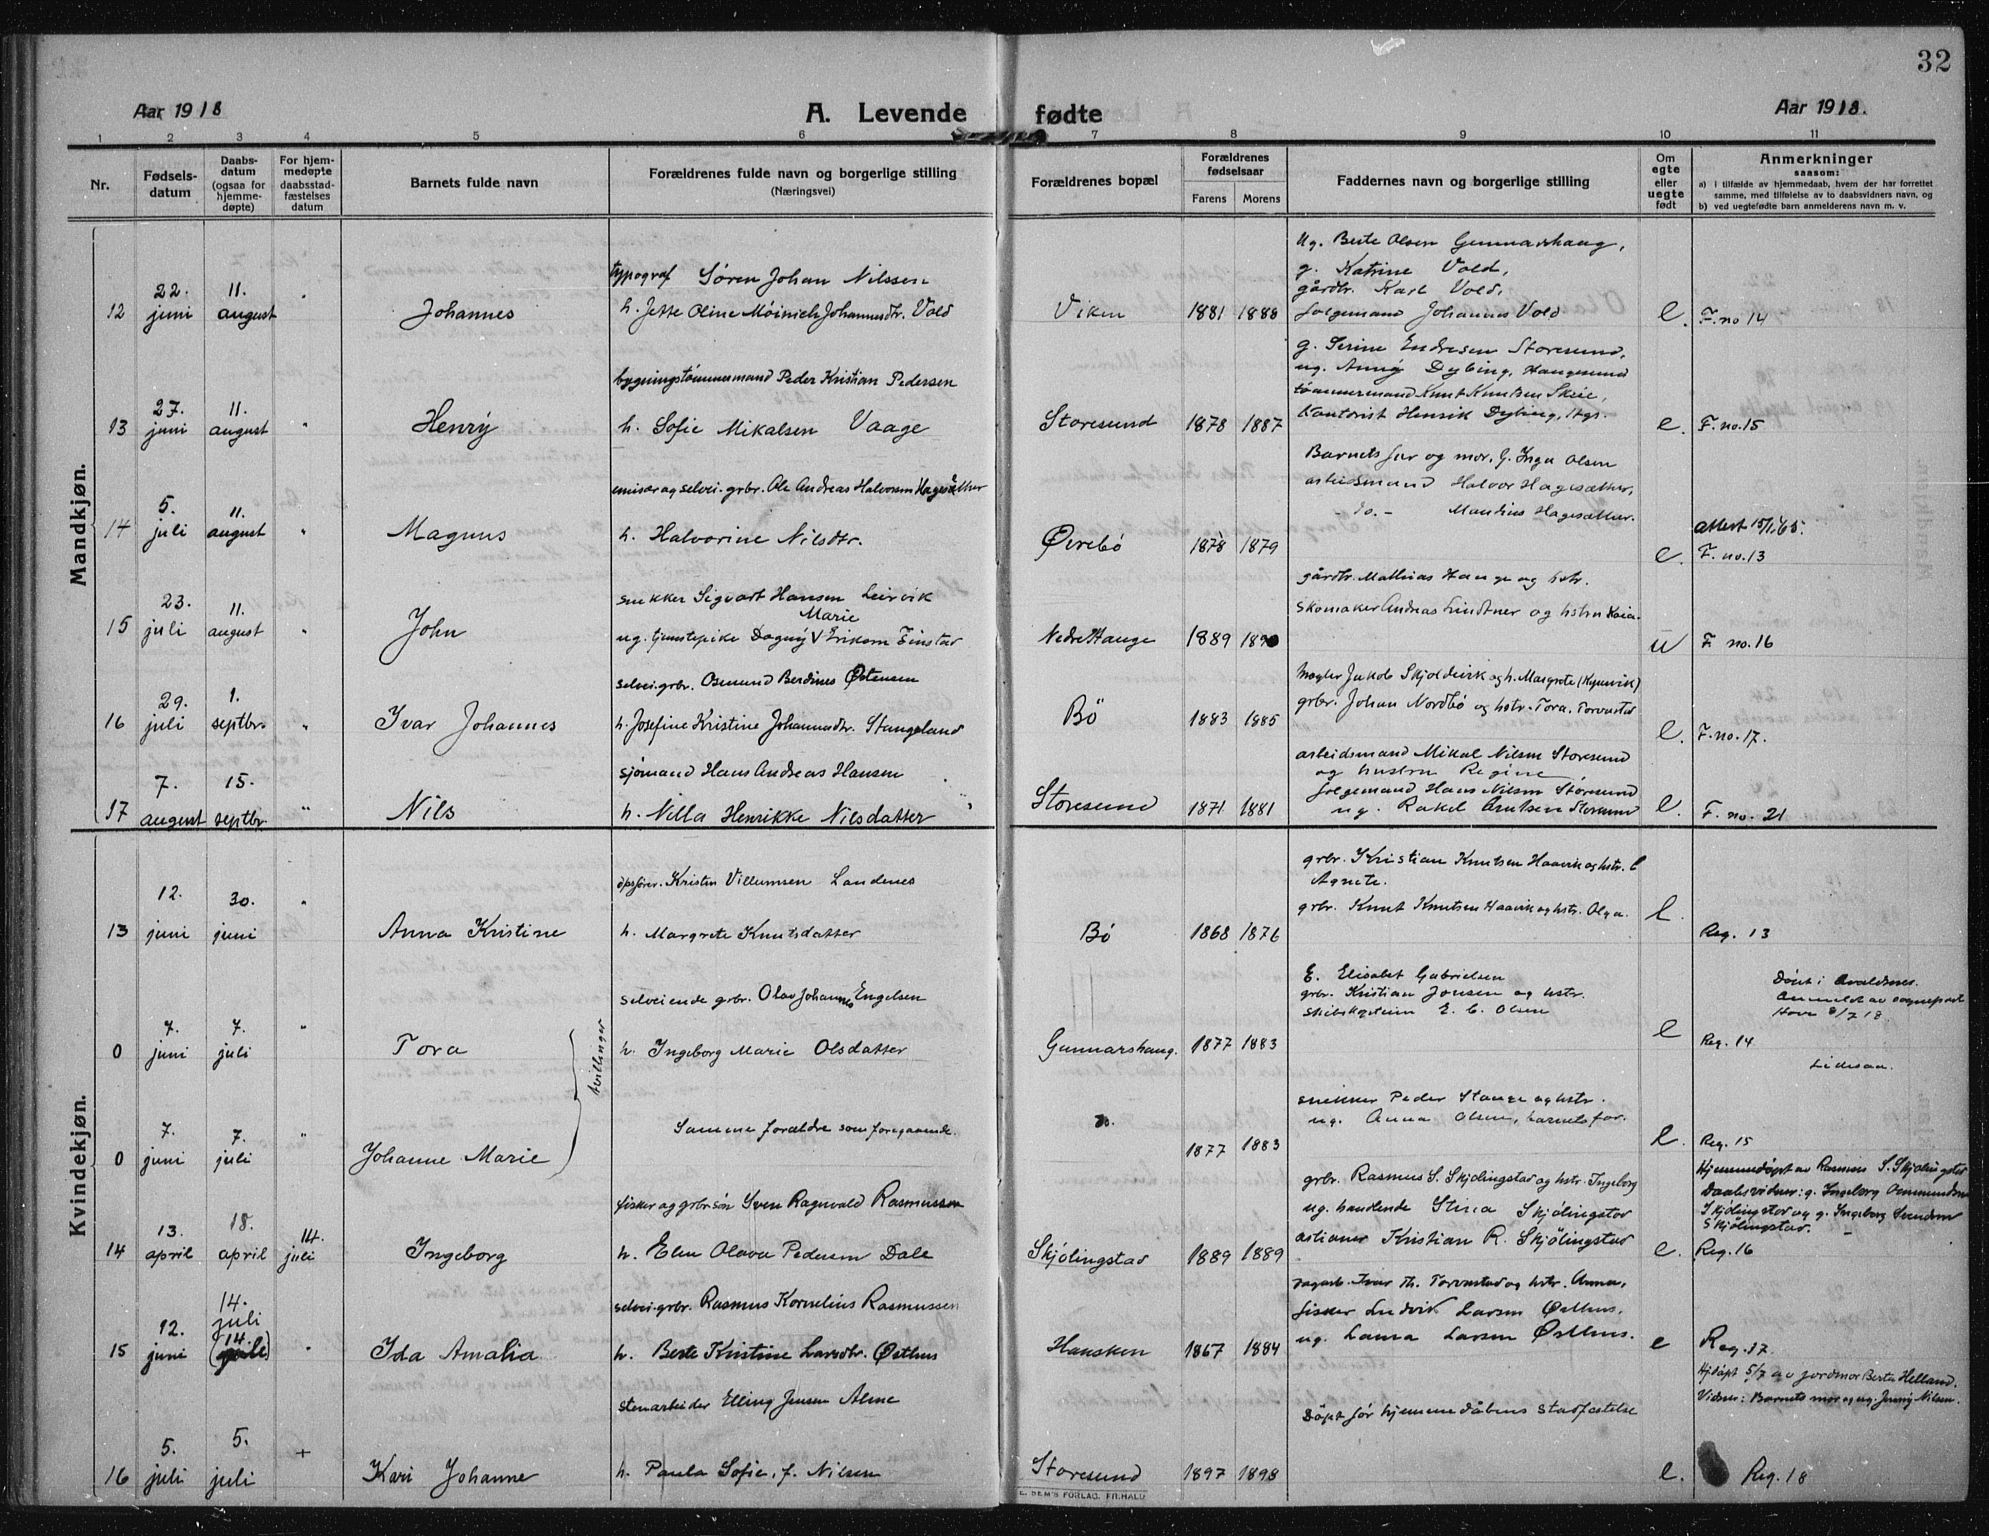 32
Aar 1918
A. Levende fødte
Aar 1918.
1 2 3 4 5 6 7 8 9 10 11
Nr.
Fødsels-
datum
Daabs-
datum
(ogsaa for
hjemme-
døpte)
For hjem-
medøpte
daabsstad-
fæstelses
datum
Barnets fulde navn
Forældrenes fulde navn og borgerlige stilling
(Næringsvei)
Forældrenes bopæl
Forældrenes
fødselsaar
Farens Morens
Faddernes navn og borgerlige stilling
Om
egte
eller
uegte
født
Anmerkninger
saasom:
a) i tilfælde av hjemmedaab, hvem der har forrettet
samme, med tilføielse av to daabsvidners navn, og
b) ved uegtefødte barn anmelderens navn m. v.
Mandkjøn.
12 22. juni 11. august " Johannes
typograf Søren Johan Nilssen
h. Jette Oline Möinich Johannesdtr. Vold
Viken 1881 1888
Ug. Berte Olsen Gunnarshaug,
g. Katrine Vold,
gårdbr. Karl Vold,
Johannes Vold
e. F. no 14
13 27. juni 11. august " Henrÿ
bygningstømmermand Peder Kristian Pedersen
h. Sofie Mikalsen Vaage
Storesund 1878 1887
g. Serine Endresen Storesund,
ug. Annÿ Dybing, Haugesund
tømmermand Knut Knutsen Skeie,
Henrik Dybing, Hgs.
e. F. no. 15
14 5. juli 11. august " Magnus
emisær og selvei. grbr. Ole Andreas Halvorsen Hagesæther
h. Halvorine Nilsdtr.
Øvrebø 1878 1879
Barnets far og mor, g. Inga Olsen
arbeidsmand Halvor Hagesæther,
- do. - Mandius Hagesæther.
e. attest 15/1.65.
F. no. 13
15 23. juli 11. august " John
snekker Sigvart Hansen Leirvik
Marie
ug. tjenstepike Dagnÿ V Eriksen Finstad
Nedre Hauge 1889 1890
gårdbr. Mathias Hauge og hstr.
skomaker Andreas Lindtner og hstru Kaia.
u F no. 16
16 29. juli 1. septbr. " Ivar Johannes
selvei. grbr. Osmund Berdines Østensen
h. Josefine Kristine Johannesdtr. Stangeland
Bö 1883 1885
Mægler Jakob Skjoldevik og h. Margrete
grbr. Johan Nordbö og hstr. Tora. Torvastad
e. F. no. 17.
17 7. august 15. septbr. " Nils
sjömand Hans Andreas Hansen
h. Nilla Henrikke Nilsdatter
Storesund 1871 1881
arbeidsmand Mikal Nilsen Storesund
og hustru Regine
Hans Nilsen Storesund
ug. Rakel Storesund
e. F. no. 21
Kvindekjøn.
13 12. juni 30. juni " Anna Kristine
opsynsm. Kristen Villumsen Landenes
h. Margrete Knutsdatter
Bö 1868 1876
grbr. Kristian Knutsen Haavik og hstr.
Agnete.
grbr. Knut Knutsen Haavik og hstr. Olga.
e. Reg. 13
0 7. juni 7. juli " Tora
tvillinger
selveiende grbr. Olav Johannes Engelsen
h. Ingeborg Marie Olsdatter
Gunnarshaug. 1877 1883
E. Elisabet Gabrielsen
grbr. Kristian Jensen og hstr.
skibskaptein E. C. Olsen
e
Döpt i Avaldsnes.
Anmeldt av sogneprest
Hove 8/7 18.
Reg. 14
0 7. juni 7. juli " Johanne Marie
Samme forældre som foregaaende.
do. 1877 1883
snekker Peder Stange og hstr.
ug. Anna Olsen, barnets far.
e. Reg. 15
14 13. april 18. april 14. juli Ingeborg
fisker og grbr. sön Sven Ragnvald Rasmussen
h. Elen Olava Pedersen Dale
Skjölingstad 1889 1889
grbr. Rasmus S. Skjölingstad og hstr. Ingeborg
ug. handlende Stina Skjölingstad
Kristian R. Skjölingstad
e.
Hjemmedöpt av Rasmus S. Skjölingstad
Daabsvidner: g. Ingeborg Osmundsen
Skjölingstad og g. Ingeborg Svendsen
Skjölingstad.
Reg. 16
15 12. juni 14. juli (14. juli) " Ida Amalia
selvei. grbr. Rasmus Kornelius Rasmussen
h. Berte Kristine Larsdtr. Østhus
Hansken 1867 1884
Ivar Th. Torvastad og hstr. Anna,
fisker Ludvik Larsen Østhus,
ug. Laura Larsen Østhus.
e Reg. 17.
16 5. juli 5. juli + Kari Johanne
stenarbeider Elling Jensen Alme
h. Paula Sofie, f. Nilsen
Storesund 1897 1898
Döpt för hjemmedåbens stadfæstelse
e.
Hjdöpt 5/7 av jordmor Berta Helland.
Vidner: Barnets mor og ug. Jennÿ Nilsen.
Reg. 18
E. SEM'S FORLAG, FR.HALD